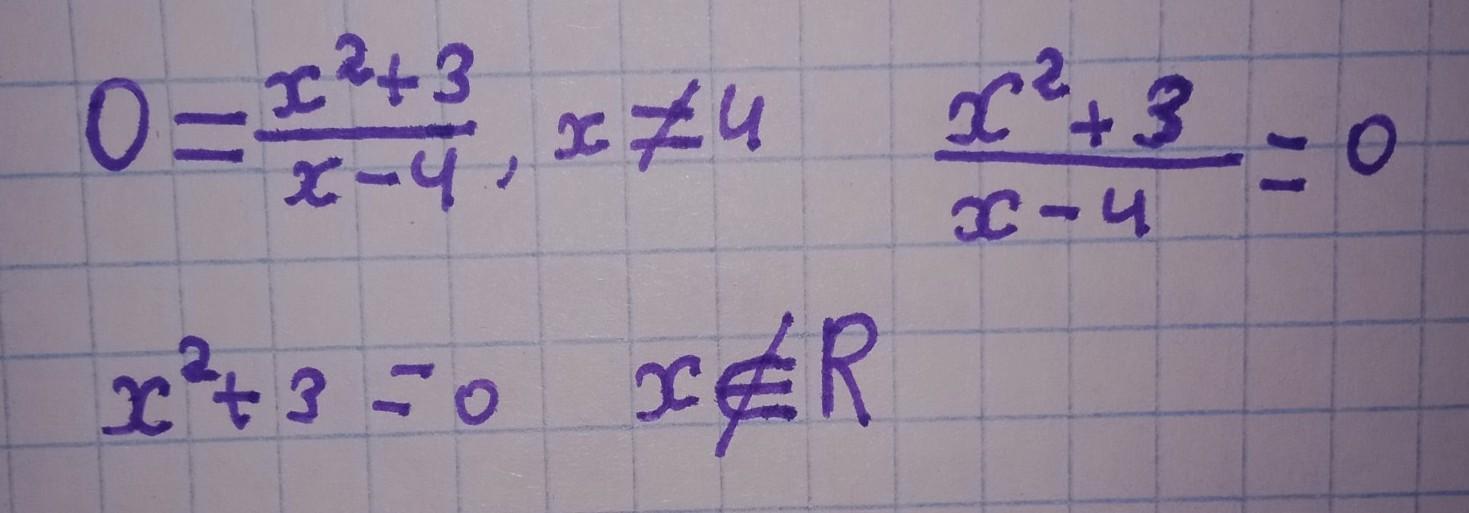 0 = \frac{x^2+3}{x-4}, x ≠ 4 \frac{x^2+3}{x-4} = 0
x^2+3 = 0 x ∉ R